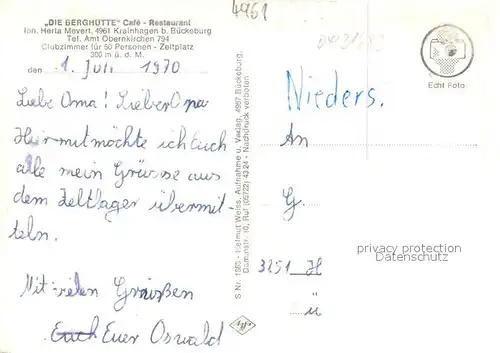 4961
„DIE BERGHÜTTE" Café - Restaurant
Inh. Herta Mevert, 4961 Krainhagen b. Bückeburg
Tel. Amt Obernkirchen 794
Clubzimmer für 50 Personen - Zeltplatz
300 m ü. d. M.
den 1. Juli 1970
Liebe Oma! Lieber Opa
Hiermit möchte ich Euch
alle mein Grüsse aus
dem Zeltlager übermit-
teln.
Mit vielen Grüßen
Euch Euer Oswald
S Nr. 1385 - Helmut Weiss, Aufnahme u. Verlag, 4967 Bückeburg,
10, Ruf (05722) 4324 - Nachdruck verboten
Echt Foto
Nieders.
An
G.
3251 H
ü
privacy protection
Datenschutz